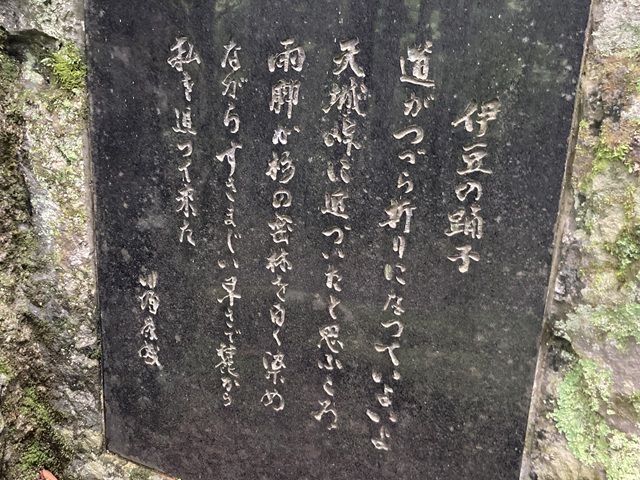 伊豆の踊子
道がつづら折りになつていよいよ
天城峠に近づいたと思ふころ
雨脚が杉の密林を白く染め
ながらすさまじい早さで麓から
私を追つて来た
川端康成